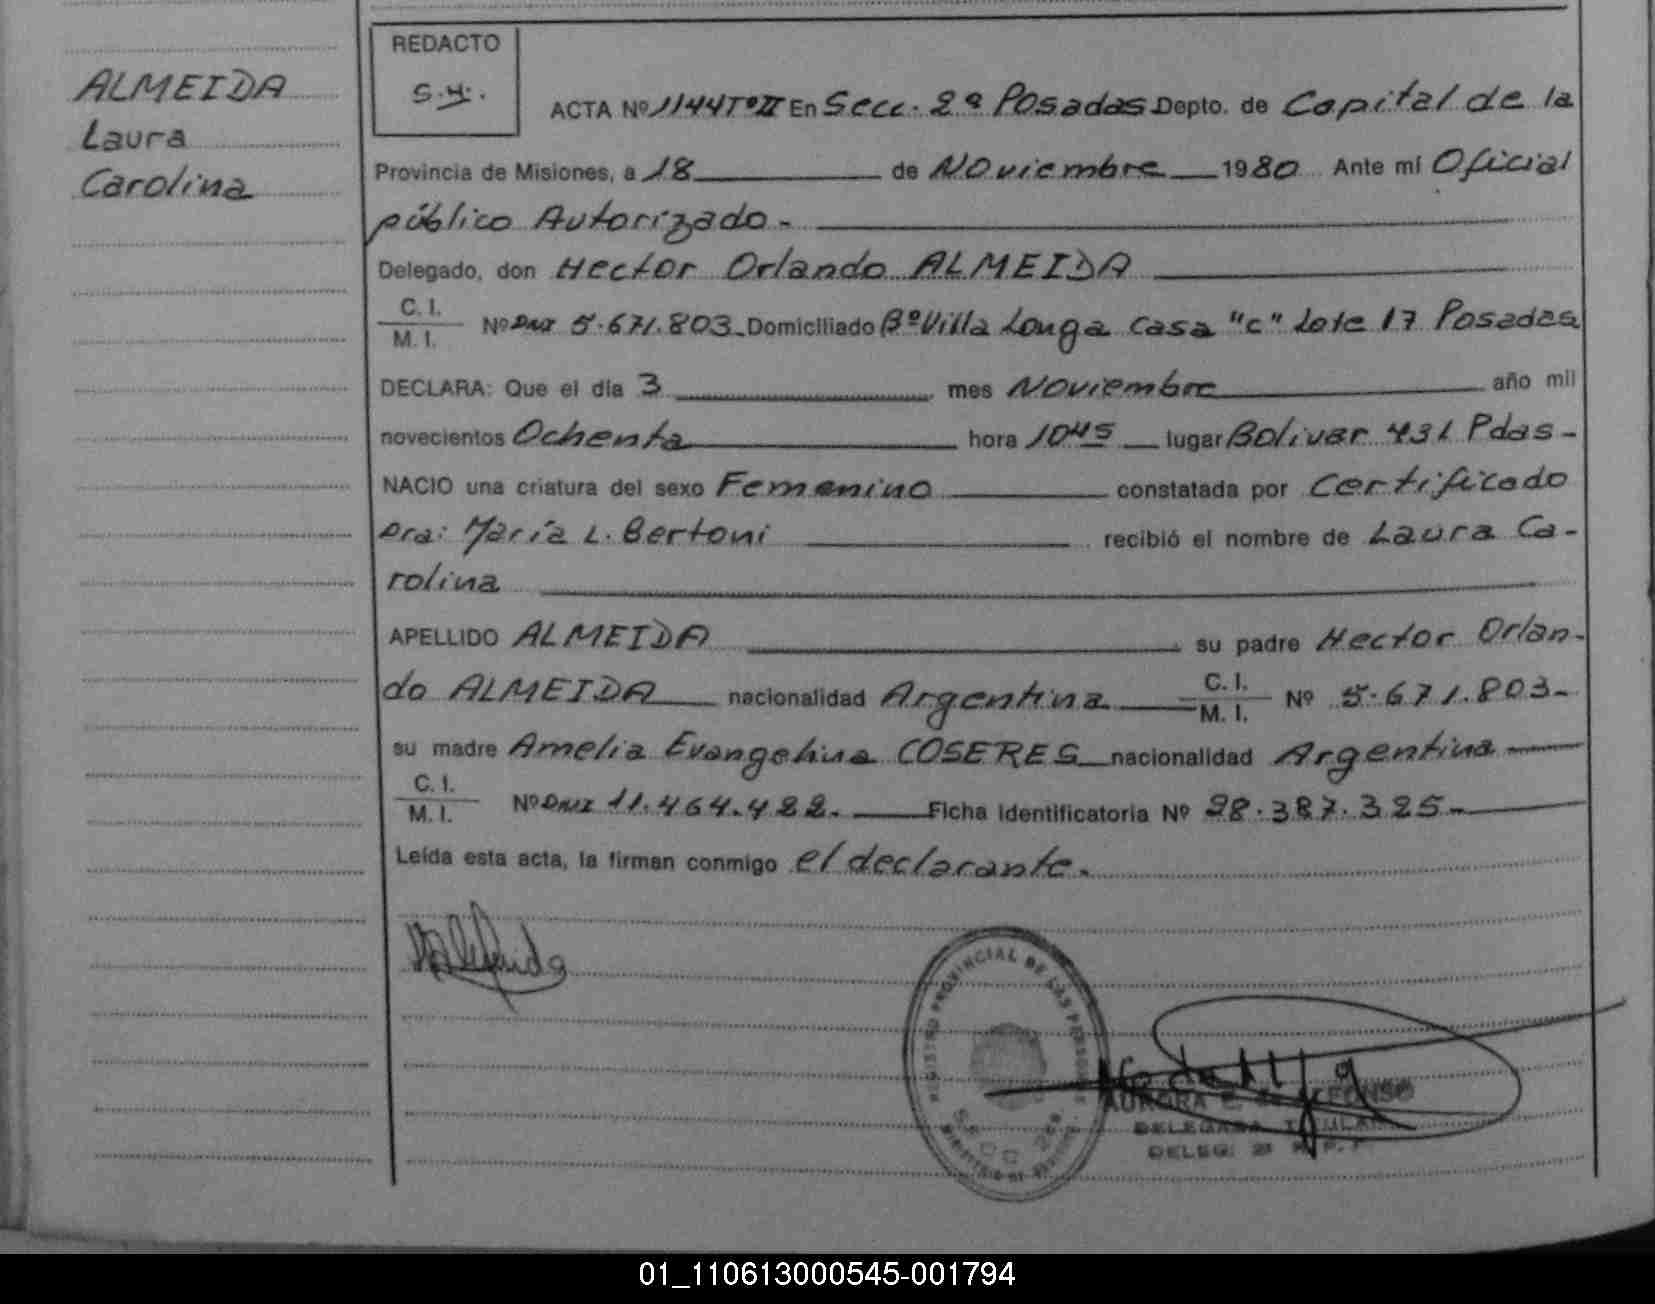 ALMEIDA
Laura
Carolina
REDACTO
S.H.
ACTA Nº 1144 Tº II En Secc. 2ª Posadas Depto. de Capital de la
Provincia de Misiones, a 18 de Noviembre 1980 Ante mí Oficial
público Autorizado.-
Delegado, don Hector Orlando ALMEIDA
C. I.
M. I. Nº DNI 5.671.803.- Domiciliado Bº Villa Longa casa "c" Lote 17 Posadas
DECLARA: Que el día 3 mes Noviembre año mil
novecientos Ochenta hora 10 45 lugar Bolivar 431 Pdas-
NACIO una criatura del sexo Femenino constatada por Certificado
Dra: María L. Bertoni recibió el nombre de Laura Ca-
rolina
APELLIDO ALMEIDA su padre Hector Orlan-
do ALMEIDA nacionalidad Argentina C. I. M. I. Nº 5.671.803-
su madre Amelia Evangelina COSERES nacionalidad Argentina
C. I.
M. I. Nº DNI 11.464.422.- Ficha Identificatoria Nº 28.387.325-
Leída esta acta, la firman conmigo el declarante.
REGISTRO PROVINCIAL DE LAS PERSONAS
SECC 2ª
AURORA E. ALFONSO
DELEGADA TITULAR
DELEG. 2ª R. P. P.
01_110613000545-001794